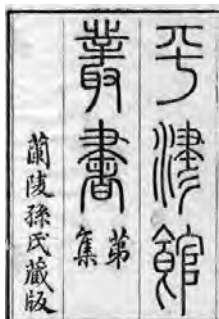 平津館
叢書
第
集
蘭陵孫氏藏版